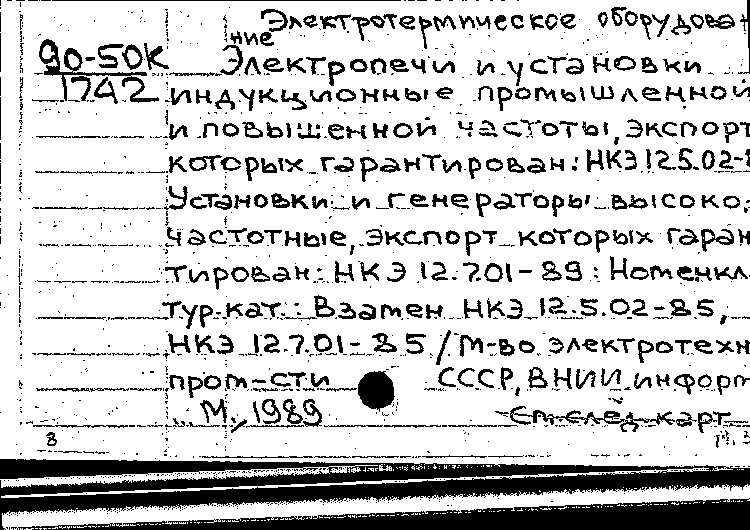 Электротермическое оборудова-
ние
90-50К Электропечи и установки
1742 индукционные промышленной
и повышенной частоты, экспорт
которых гарантирован: НКЭ 12.5.02-8
Установки и генераторы высоко-
частотные, экспорт которых гаран
тирован: НКЭ 12.7.01-89: Номенкла
тур. кат.: Взамен НКЭ 12.5.02-85,
НКЭ 12.7.01-85 / М-во электротехн
пром-сти СССР, ВНИИ информ
... М., 1989
См след карт
8